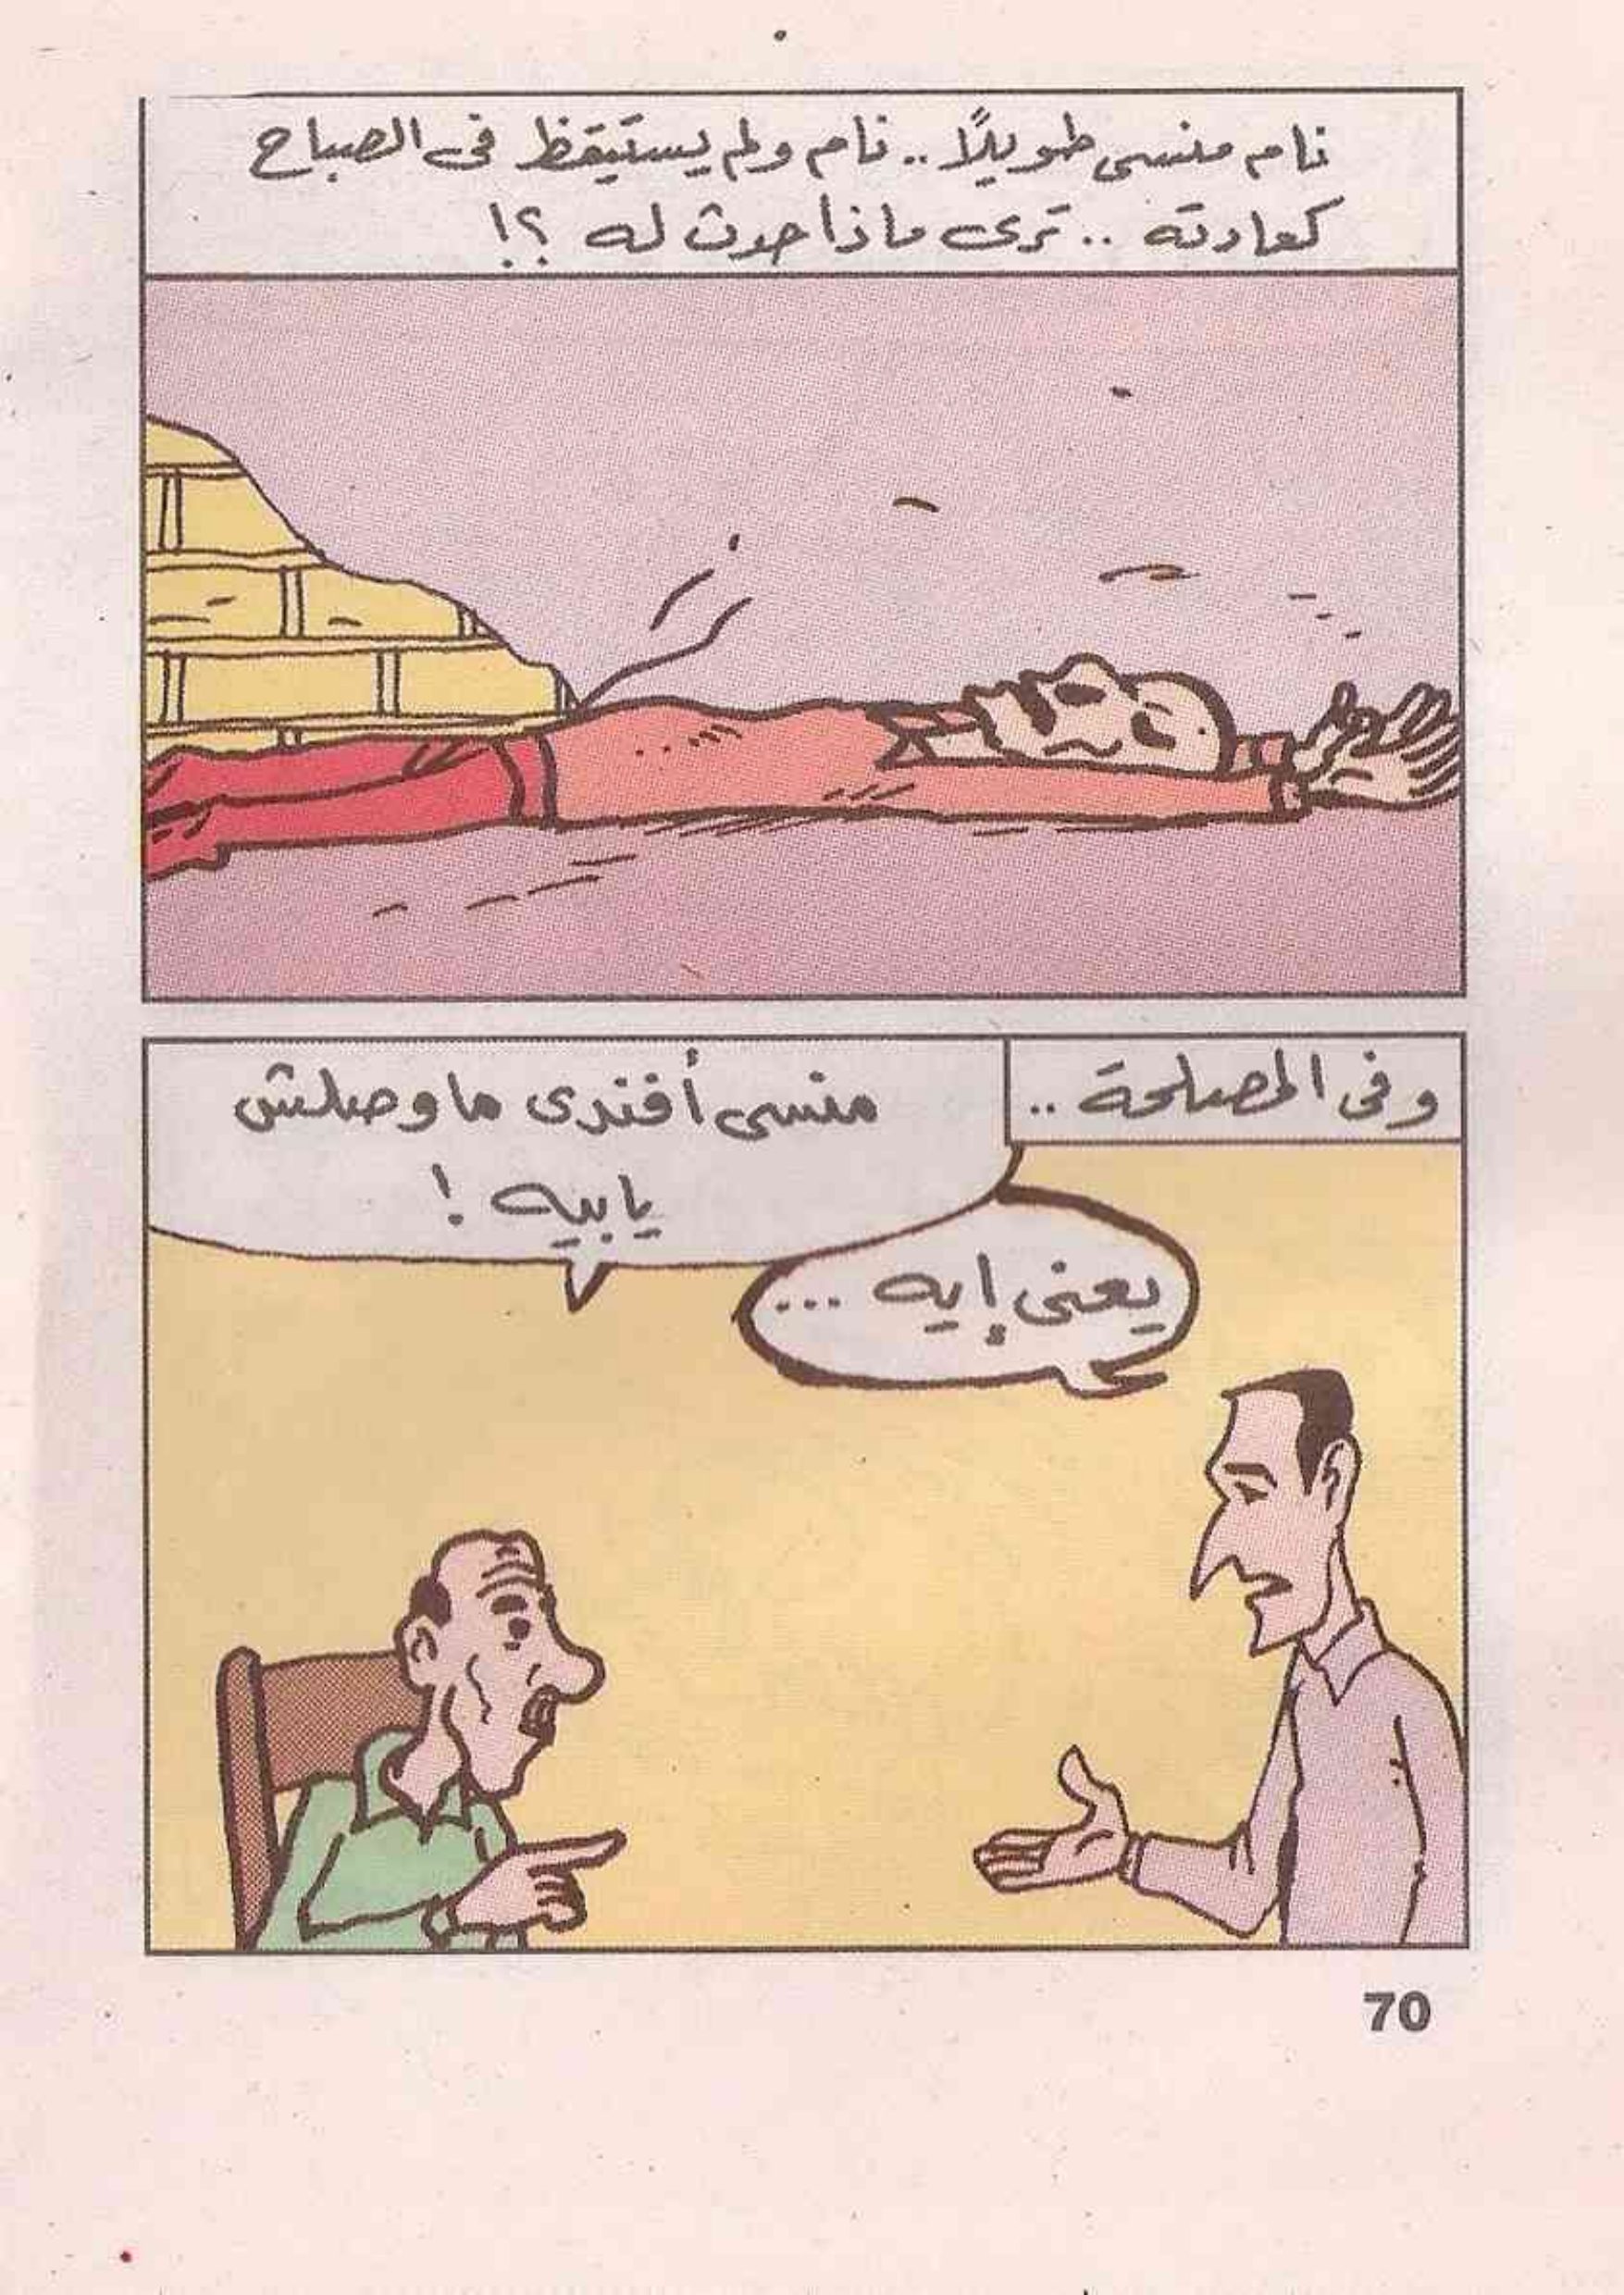 نام منسى طويلًا .. نام ولم يستيقظ فى الصباح
كعادته .. ترى ماذا حدث له ؟!
وفى المصلحة ..
منسى أفندى ماوصلش
يابيه !
يعنى إيه ...
70